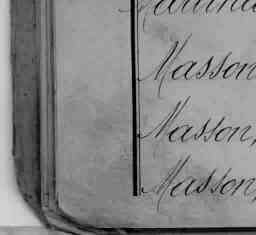 Masson
Masson,
Masson,